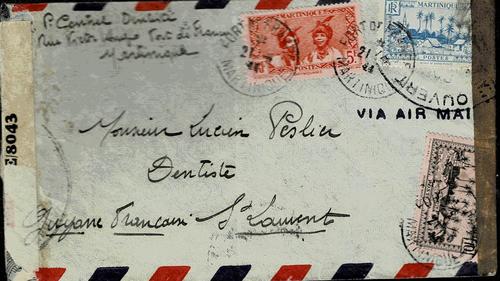 Central Dentista
Rue Victor Hugo Fort de France
Martinique
MARTINIQUE
POSTES
RF
MARTINIQUE
POSTES
FORT DE
21
44
MARTINIQUE
OUVERT
VIA AIR MAI
E/8043
Monsieur Lucien Peslier
Dentiste
Guyane Francaise St Laurent